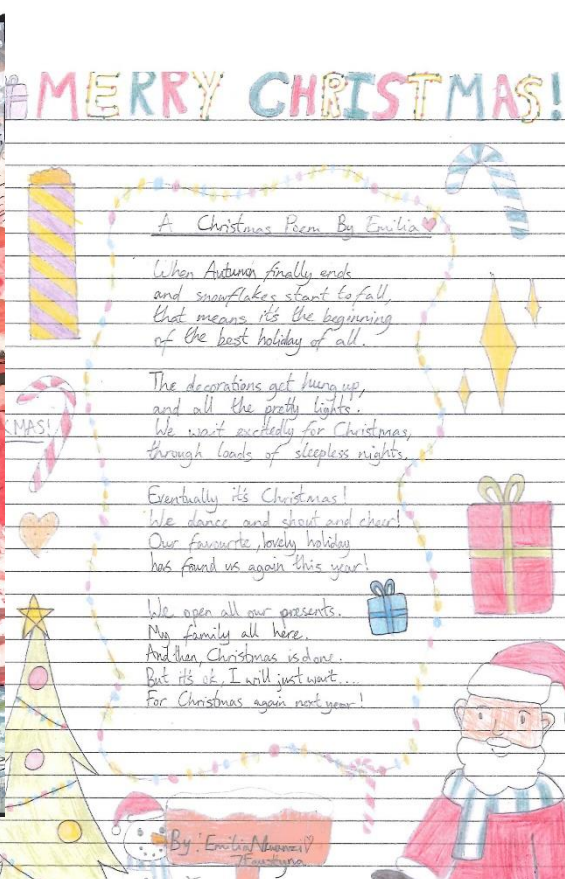 MERRY CHRISTMAS!
A Christmas Poem By Emilia
When Autumn finally ends
and snowflakes start to fall,
that means it's the beginning
of the best holiday of all.
The decorations get hung up,
and all the pretty lights.
We wait excitedly for Christmas,
through loads of sleepless nights.
MAS!
Eventually it's Christmas!
We dance and shout and cheer!
Our favourite, lovely holiday
has found us again this year!
We open all our presents.
My family all here.
And then, Christmas is done.
But it's ok, I will just wait....
For Christmas again next year!
By: Emilia
7Faustyna